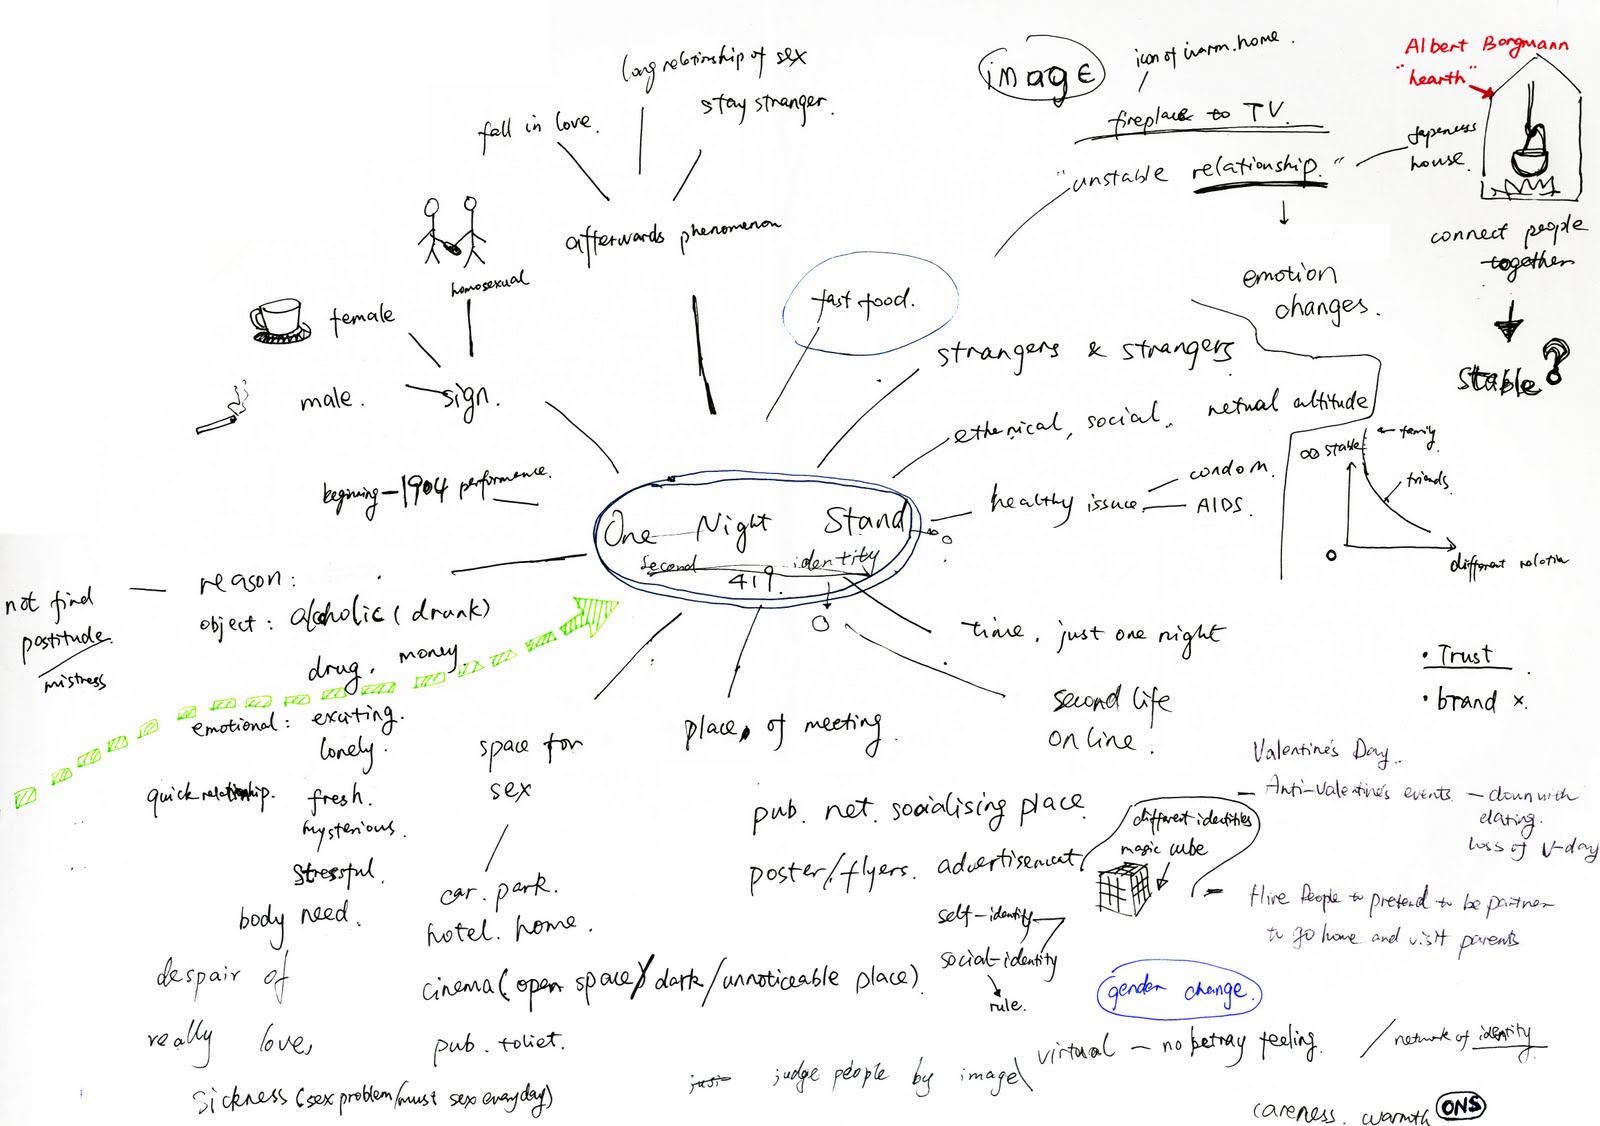 long relationship of sex
stay stranger.
fall in love.
afterwards phenomenon
homosexual
female
male.
sign.
begining - 1904 performance.
image
icon of warm.home.
fireplace to TV.
"unstable relationship."
emotion
changes.
Albert Borgmann
"hearth"
Japeness
house.
connect people
together
stable?
fast food.
strangers & strangers
ethenical, social,
netual altitude
healthy issue
condom.
AIDS.
∞ stable
family
friends
0
different relation
One Night Stand
second identity
419.
0
0
time, just one night
second life
online.
• Trust
• brand x.
not find
postitude.
mistress
reason:
object: alcoholic (drunk)
drug. money.
emotional: exciting.
lonely.
quick relationship.
fresh.
mysterious.
stressful.
body need.
despair of
really love,
sickness (sex problem/must sex everyday)
space for
sex
car. park.
hotel. home.
cinema (open space) dark/unnoticeable place).
pub. toliet.
place, of meeting.
pub. net. socialising place.
poster/flyers. advertisement
different identities
magic cube
self-identity
social-identity
rule.
Valentine's Day..
- Anti-valentine's events - down with
dating.
loss of V-day
- Hire People to pretend to be partner
to go home and visit parents
gender change.
virtual - no betray feeling.
/ network of identity
just judge people by image
careness. warmth ONS